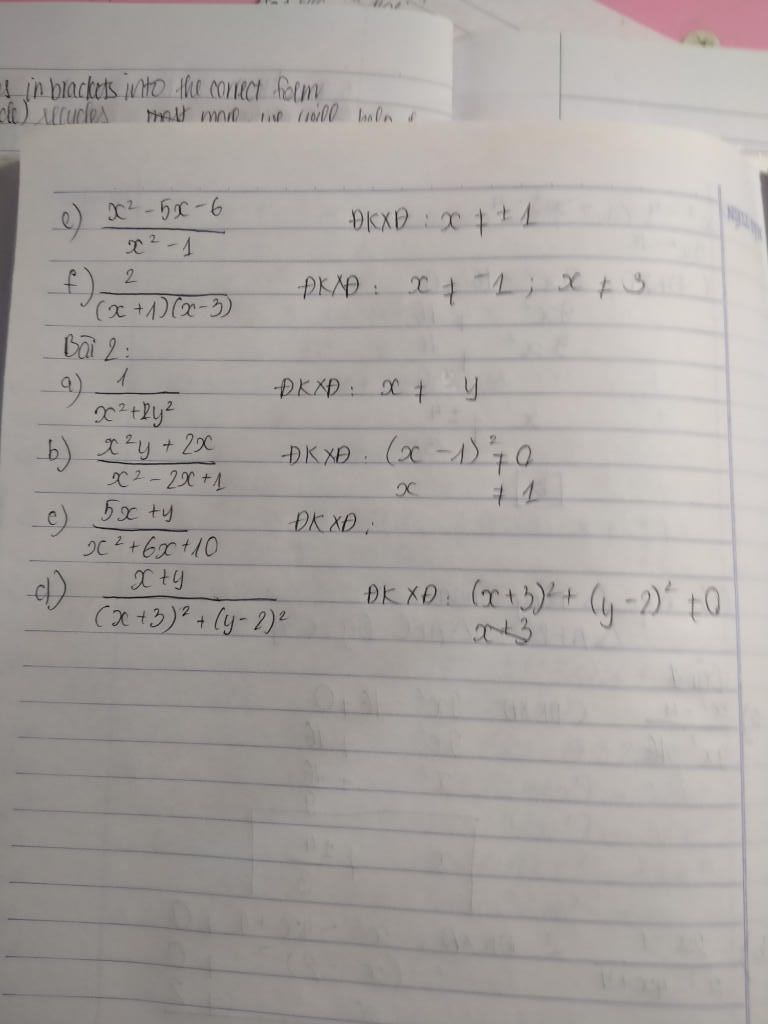 in brackets into the correct form
recycles that more we will help
e) x² - 5x - 6 / x² - 1 ĐKXĐ : x ≠ ± 1
f) 2 / (x + 1)(x - 3) ĐKXĐ : x ≠ -1 ; x ≠ 3
Bài 2 :
a) 1 / x² + 2y² ĐKXĐ : x ≠ y
b) x²y + 2x / x² - 2x + 1 ĐKXĐ : (x - 1)² ≠ 0
x ≠ 1
c) 5x + y / x² + 6x + 10 ĐKXĐ :
d) x + y / (x + 3)² + (y - 2)² ĐKXĐ : (x + 3)² + (y - 2)² ≠ 0
x + 3